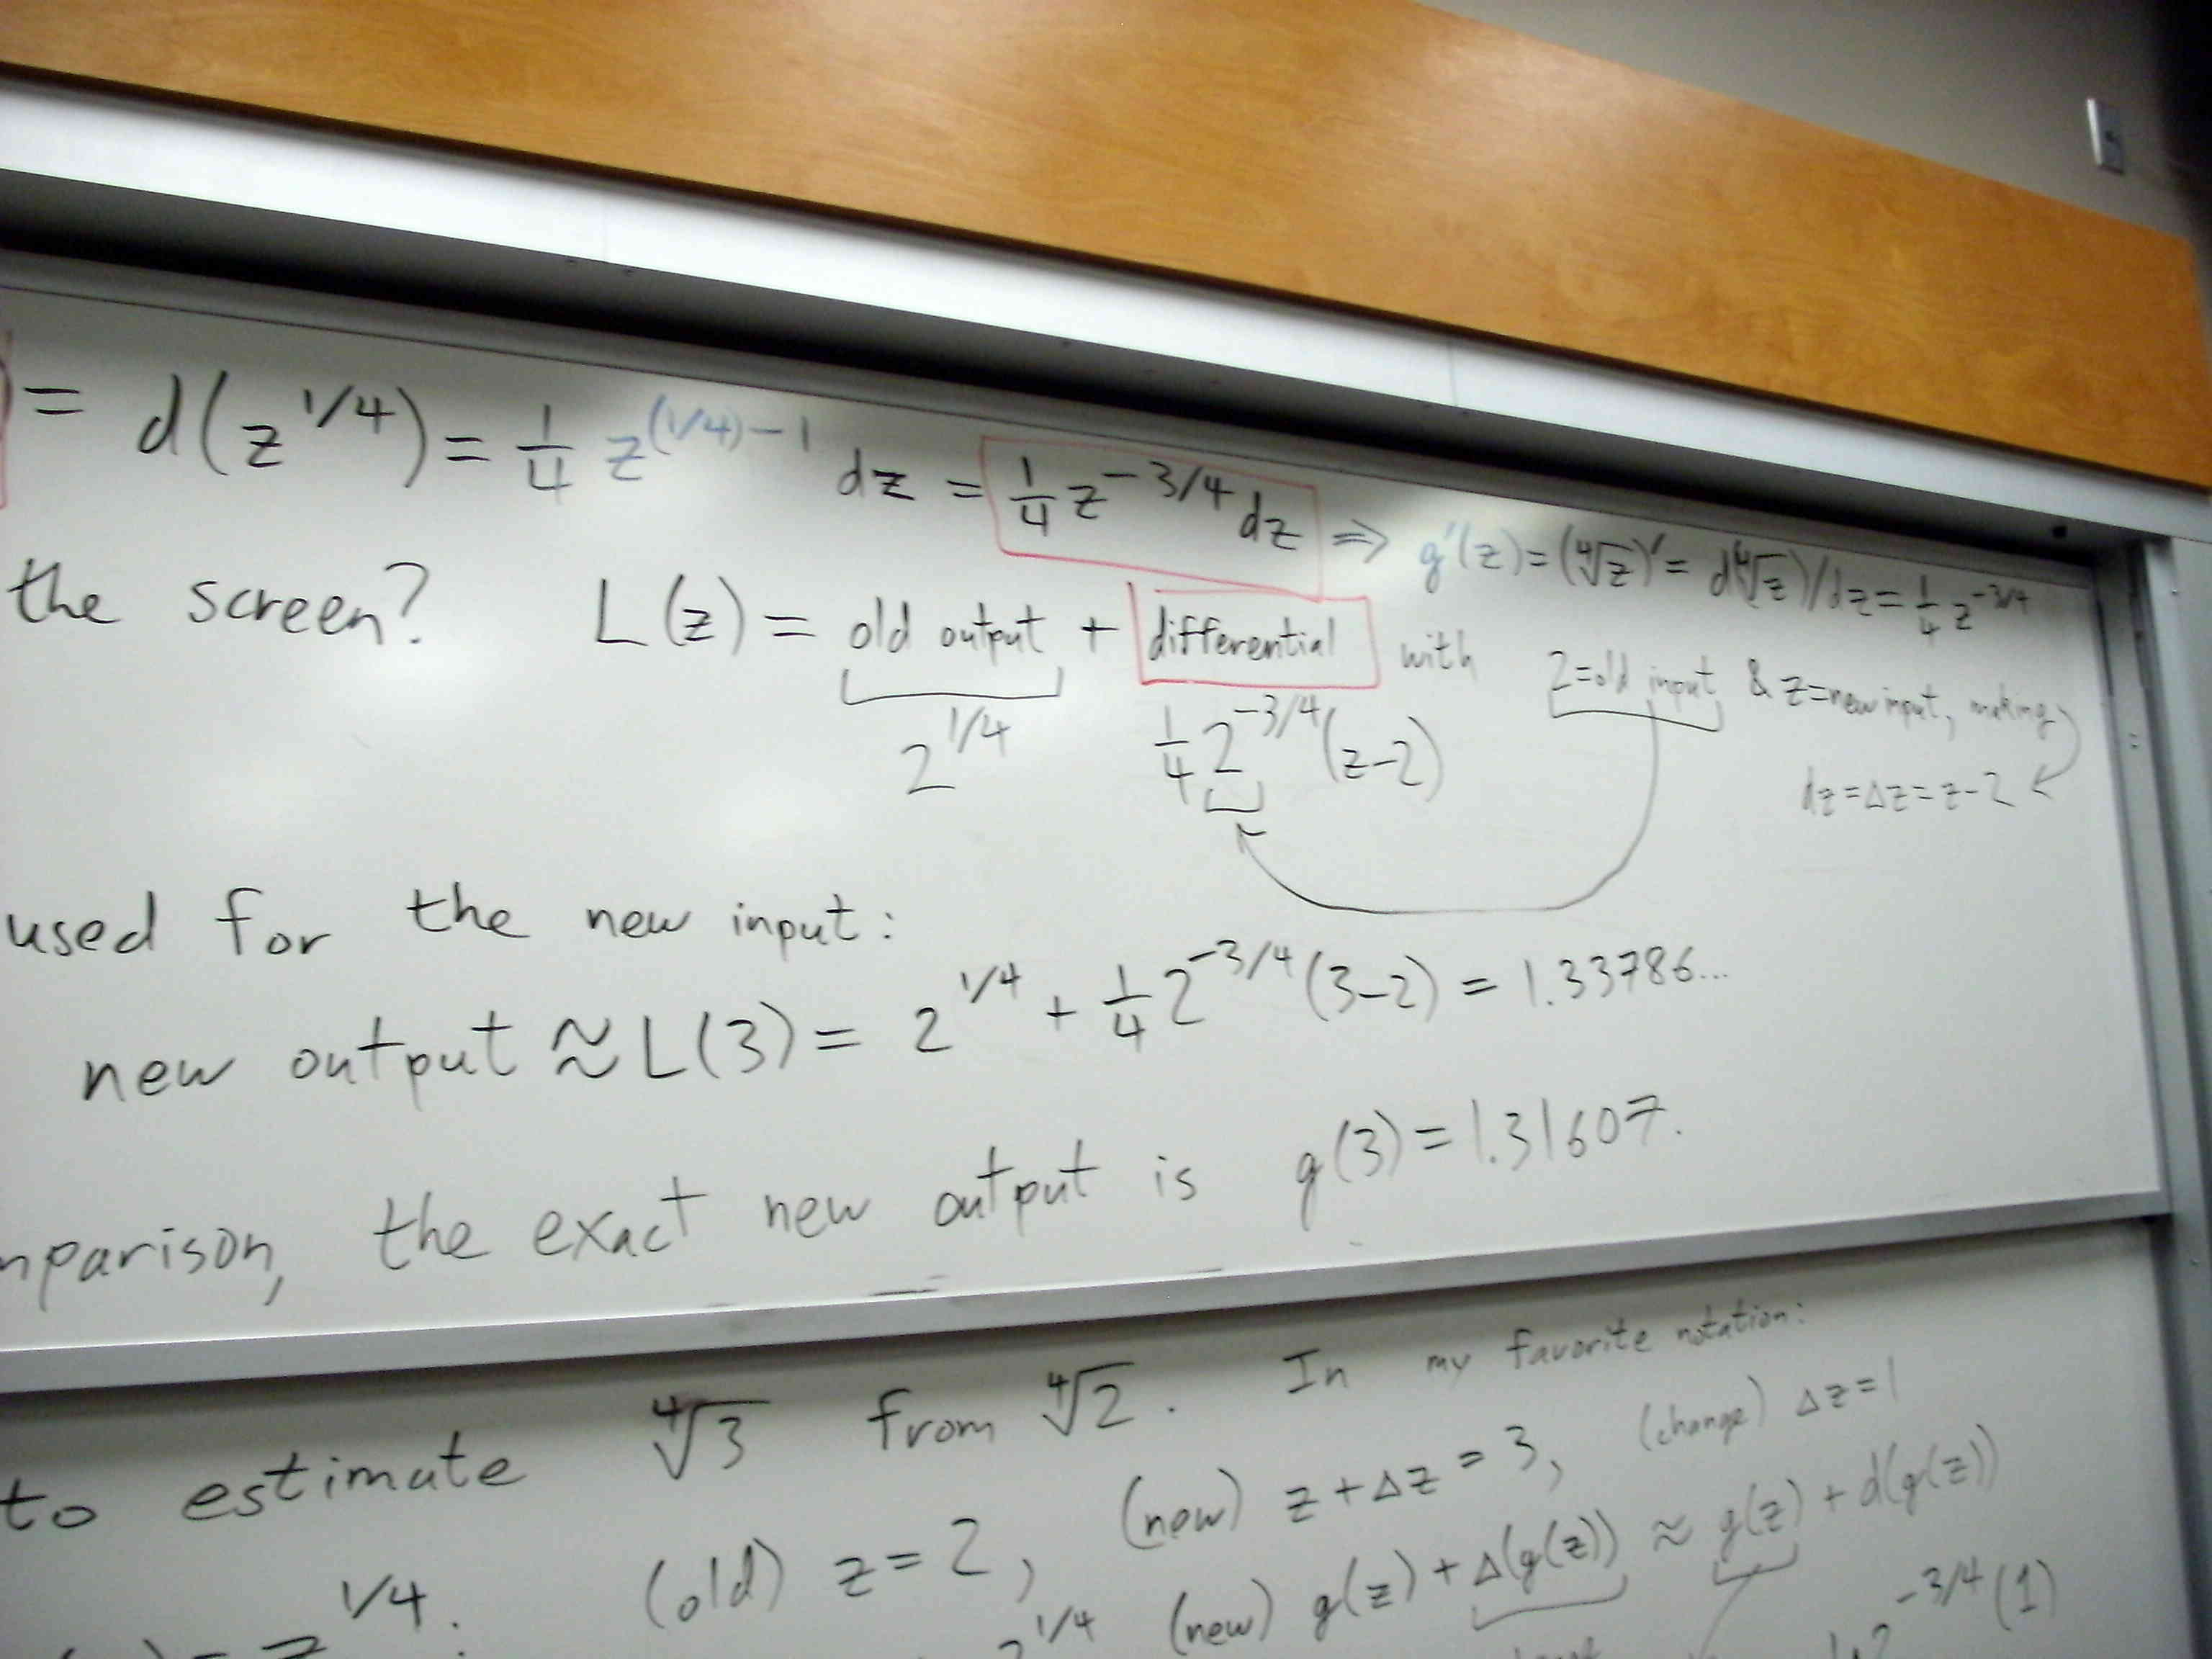 = d(z^1/4) = 1/4 z^(1/4)-1 dz = 1/4 z^-3/4 dz ⇒ g'(z) = (∜z)' = d(∜z)/dz = 1/4 z^-3/4
the screen? L(z) = old output + differential with 2=old input & z=new input, making
2^1/4 1/4 2^-3/4 (z-2) dz=Δz=z-2
used for the new input:
new output ≈ L(3) = 2^1/4 + 1/4 2^-3/4 (3-2) = 1.33786...
mparison, the exact new output is g(3) = 1.31607.
to estimate ∜3 from ∜2. In my favorite notation:
(old) z=2, (new) z+Δz=3, (change) Δz=1
z^1/4. 2^1/4 (new) g(z)+Δ(g(z)) ≈ g(z)+d(g(z))
2^-3/4 (1)